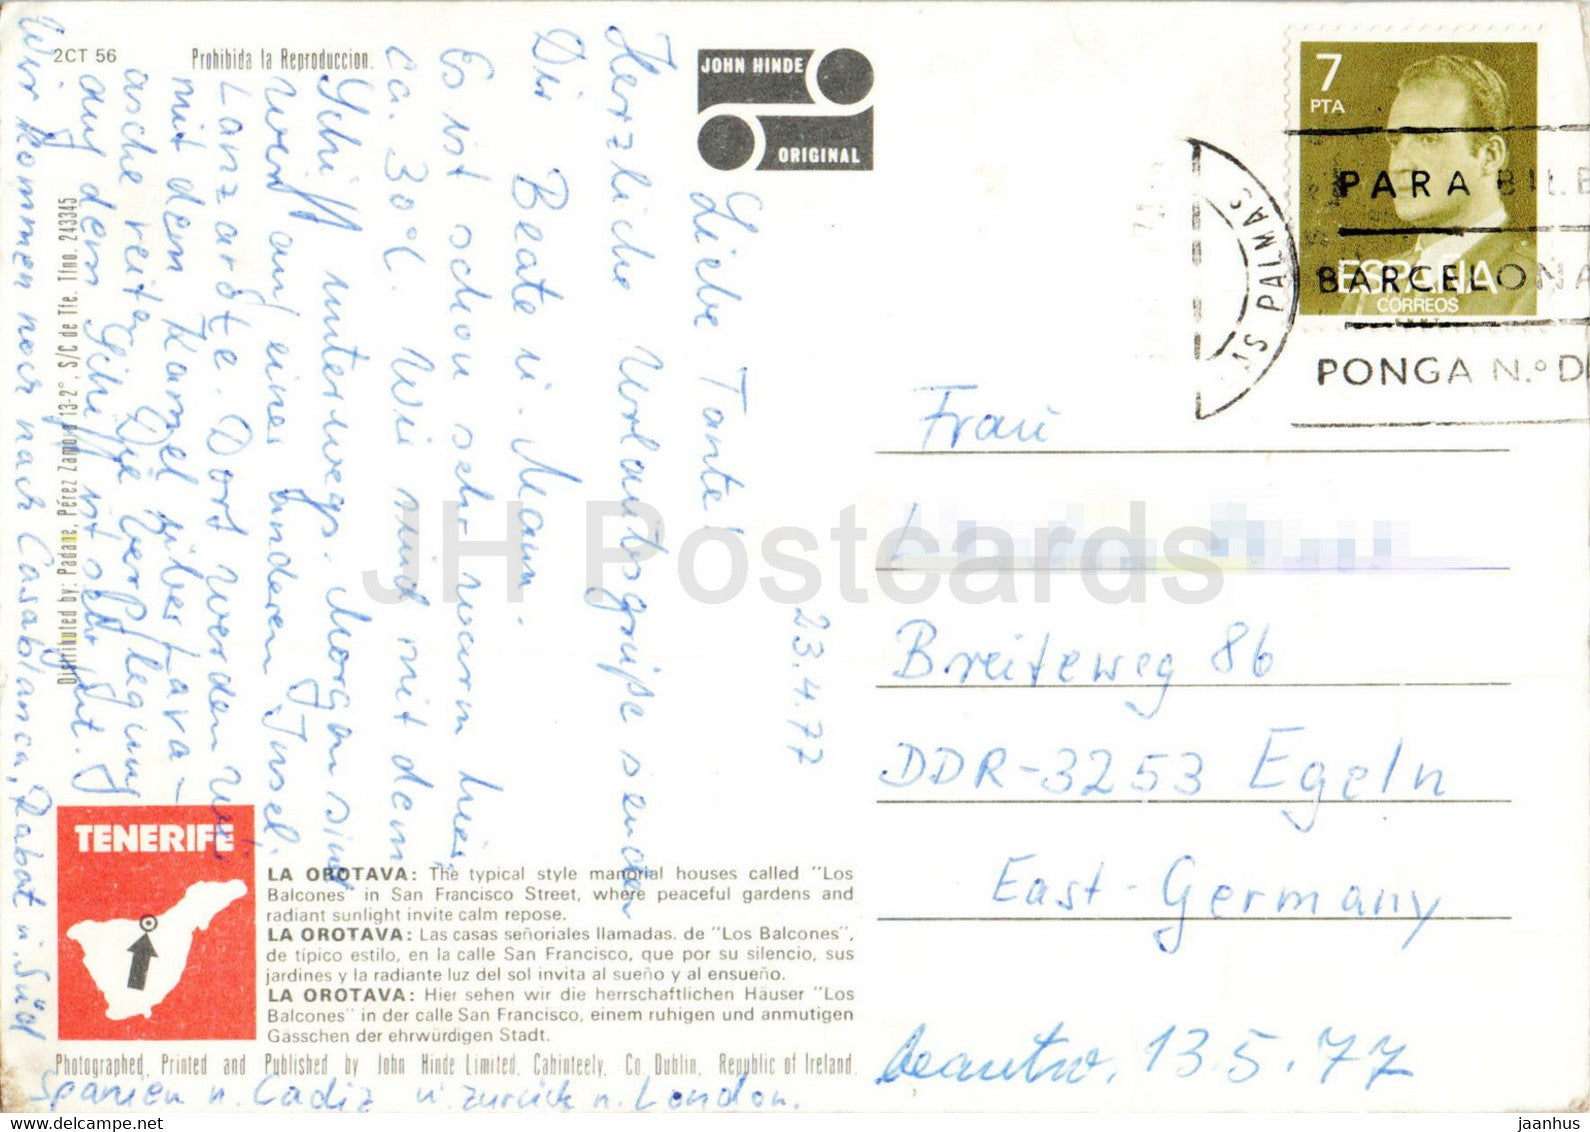 2CT 56
Prohibida la Reproduccion.
JOHN HINDE
ORIGINAL
7
PTA
ESPAÑA
CORREOS
F.N.M.T.
PARA BILB
BARCELONA
PONGA N.º DI
S PALMAS
23.4.77
Liebe Tante!
Herzliche Urlaubsgrüße senden
Dir Beate u. Mann.
Es ist schon sehr warm hier,
ca. 30°C. Wir sind mit dem
Schiff unterwegs. Morgen sind
wir auf einer anderen Insel.
Lanzarote. Dort werden wir
mit dem Kamel über Lava-
asche reiten. Die Verpflegung
auf dem Schiff ist sehr gut.
Wir kommen noch nach Casablanca, Rabat u. Süd
Spanien n. Cadiz u. zurück n. London.
Frau
Breiteweg 86
DDR-3253 Egeln
East-Germany
beantw. 13.5.77
Distributed by: Padane, Pérez Zamora 13-2°, S/C de Tfe. Tfno. 243345
TENERIFE
LA OROTAVA: The typical style manorial houses called "Los
Balcones" in San Francisco Street, where peaceful gardens and
radiant sunlight invite calm repose.
LA OROTAVA: Las casas señoriales llamadas. de "Los Balcones",
de típico estilo, en la calle San Francisco, que por su silencio, sus
jardines y la radiante luz del sol invita al sueño y al ensueño.
LA OROTAVA: Hier sehen wir die herrschaftlichen Häuser "Los
Balcones" in der calle San Francisco, einem ruhigen und anmutigen
Gässchen der ehrwürdigen Stadt.
Photographed, Printed and Published by John Hinde Limited, Cabinteely, Co. Dublin, Republic of Ireland.
JH Postcards
jaanhus
www.hipstamp.com